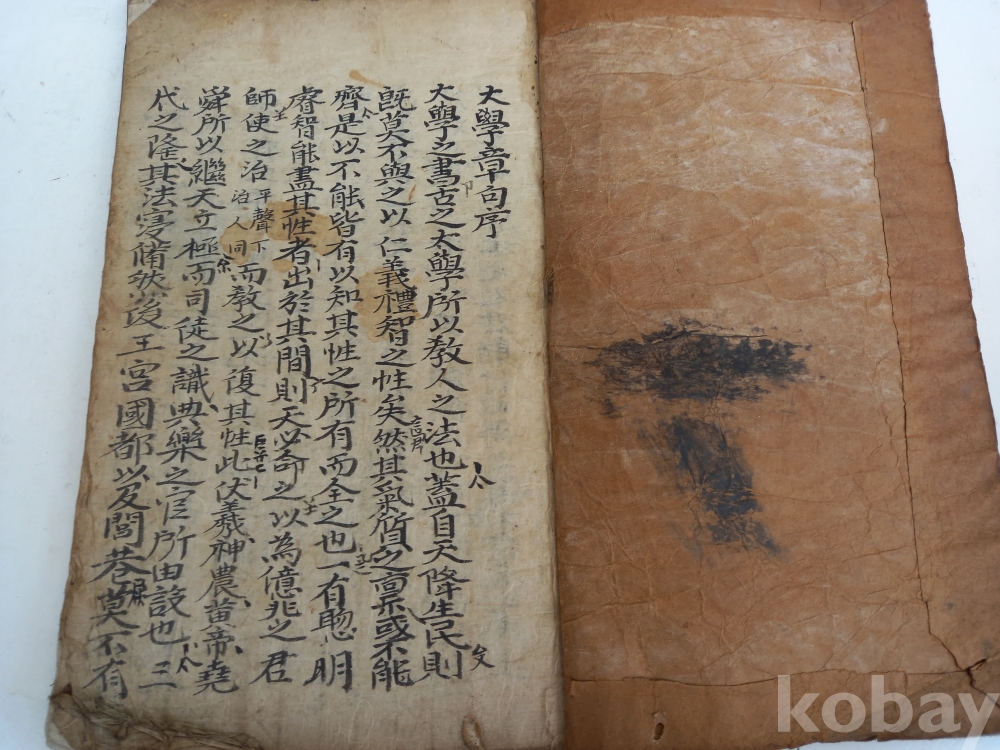 大學章句序
大學之書古之太學所以教人之法也蓋自天降生民則
旣莫不與之以仁義禮智之性矣然其氣質之稟或不能
齊是以不能皆有以知其性之所有而全之也一有聰明
睿智能盡其性者出於其間則天必命之以為億兆之君
師使之治平聲下治人同而教之以復其性此伏羲神農黃帝堯
舜所以繼天立極而司徒之識典樂之官所由設也三
代之隆其法寖備然後王宮國都以及閭巷莫不有
kobay